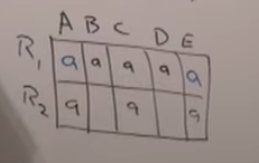 A B C D E
R1 a a a a a
R2 a a a